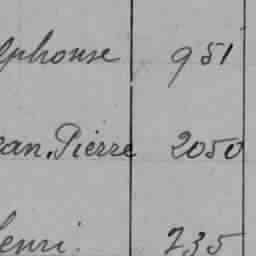 lphonse 951
ean, Pierre 2050
enri. 235